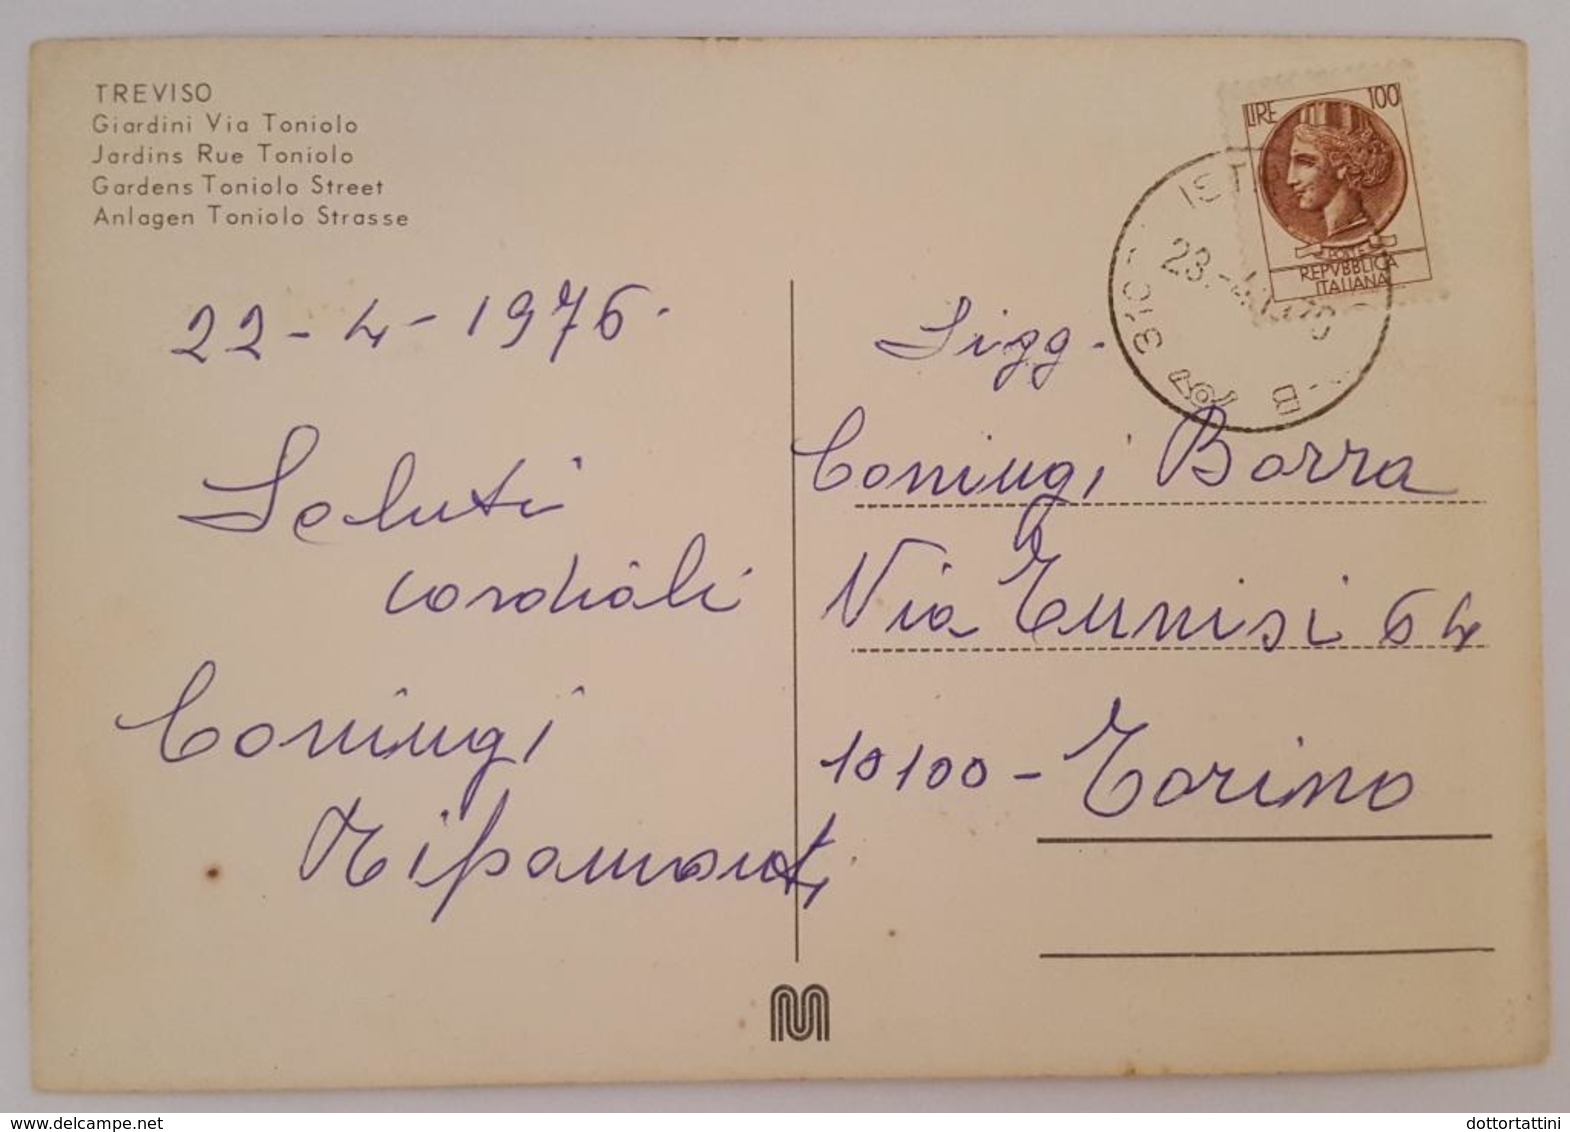 TREVISO
Giardini Via Toniolo
Jardins Rue Toniolo
Gardens Toniolo Street
Anlagen Toniolo Strasse
22-4-1976.
Saluti
cordiali
Coniugi
Ripamonti
LIRE 100
POSTE
REPVBBLICA
ITALIANA
23.-4.
Sigg.
Coniugi Borra
Via Tunisi 64
10100 - Torino
www.delcampe.net
dottortattini